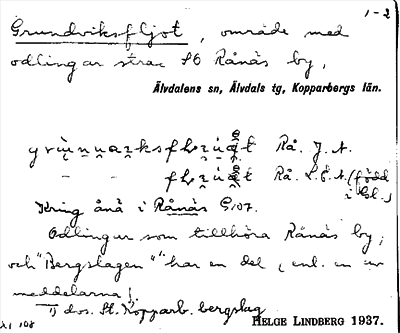 1-2
Grundviksfljot, område med
odlingar strax SO Rånäs by,
Älvdalens sn, Älvdals tg, Kopparbergs län.
Rå. J. A.
Rå. L. E. A. (född
i Gl.)
Kring ånä i Rånäs G:107.
Odlingar som tillhöra Rånäs by;
och "Bergslagen" 1) har en del, (enl. en av
meddelarna).
1) dvs. St. Kopparb. bergslag
HELGE LINDBERG 1937.